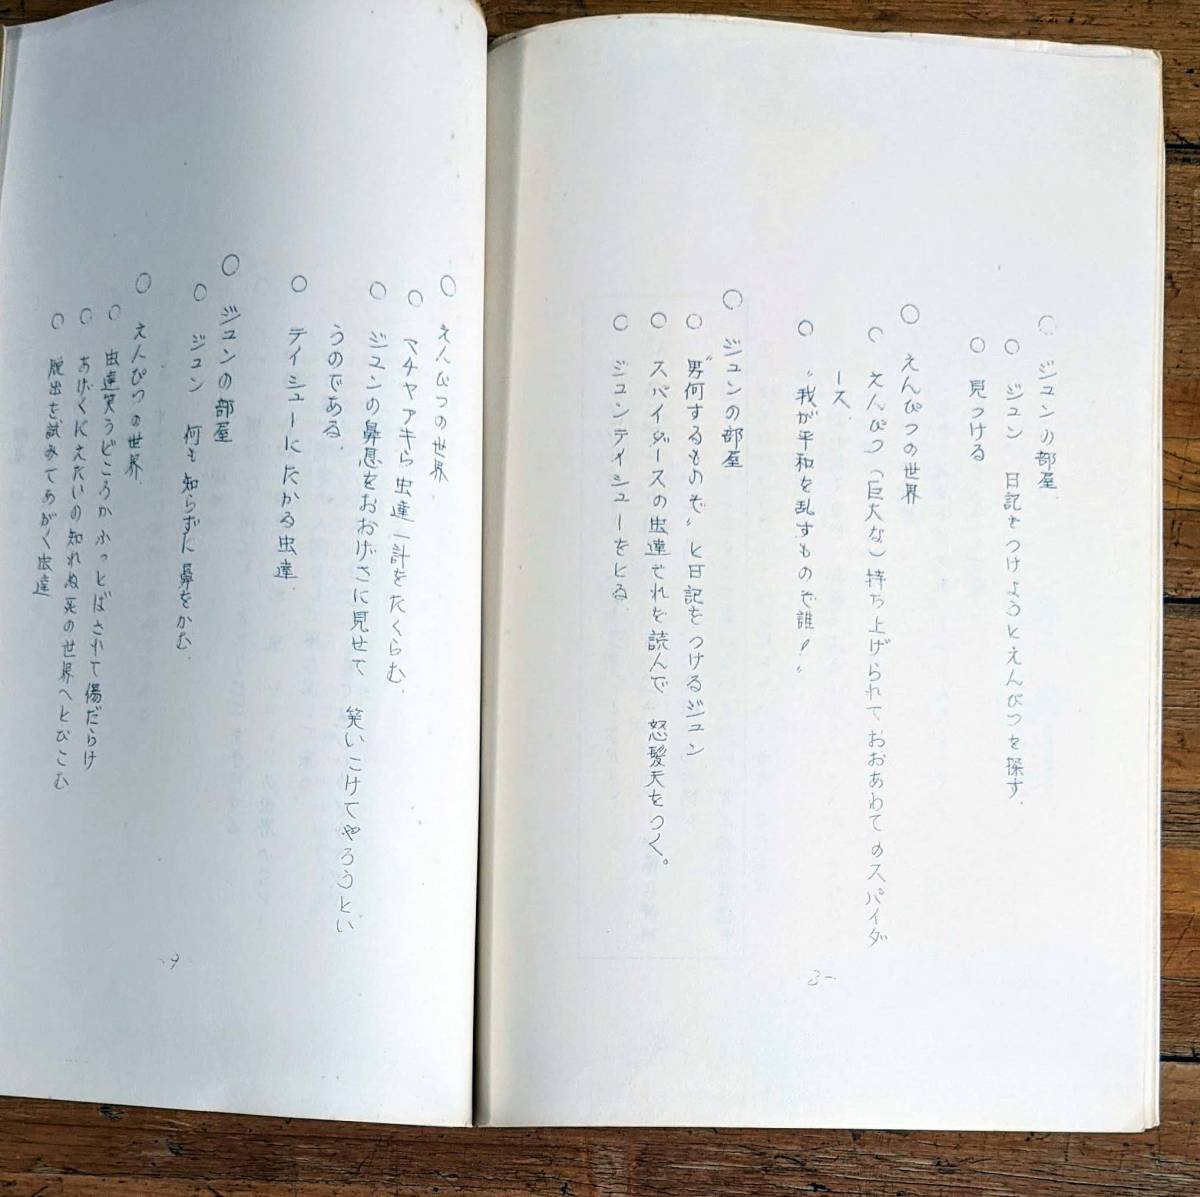 ○ ジュンの部屋.
○ ジュン 日記をつけようとえんぴつを探す.
○ 見つける
○ えんぴつの世界
○ えんぴつ(巨大な)持ち上げられておおあわてのスパイダ
ース.
○ “我が平和を乱すものぞ誰！”
○ ジュンの部屋
○ “男何するものぞ”と日記をつけるジュン
○ スパイダースの虫達それを読んで 怒髪天をつく。
○ ジュンテイシューをとる.
8
○ えんぴつの世界
○ マチャアキら虫達一計をたくらむ.
○ ジュンの鼻息をおおげさに見せて 笑いこけてやろうとい
うのである.
○ テイシューにたかる虫達
○ ジュンの部屋
○ ジュン 何も知らずに鼻をかむ.
○ えんぴつの世界.
○ 虫達笑うどころかふっとばされて傷だらけ
○ あげくにえたいの知れぬ死の世界へとびこむ
○ 脱出を試みてあがく虫達
9